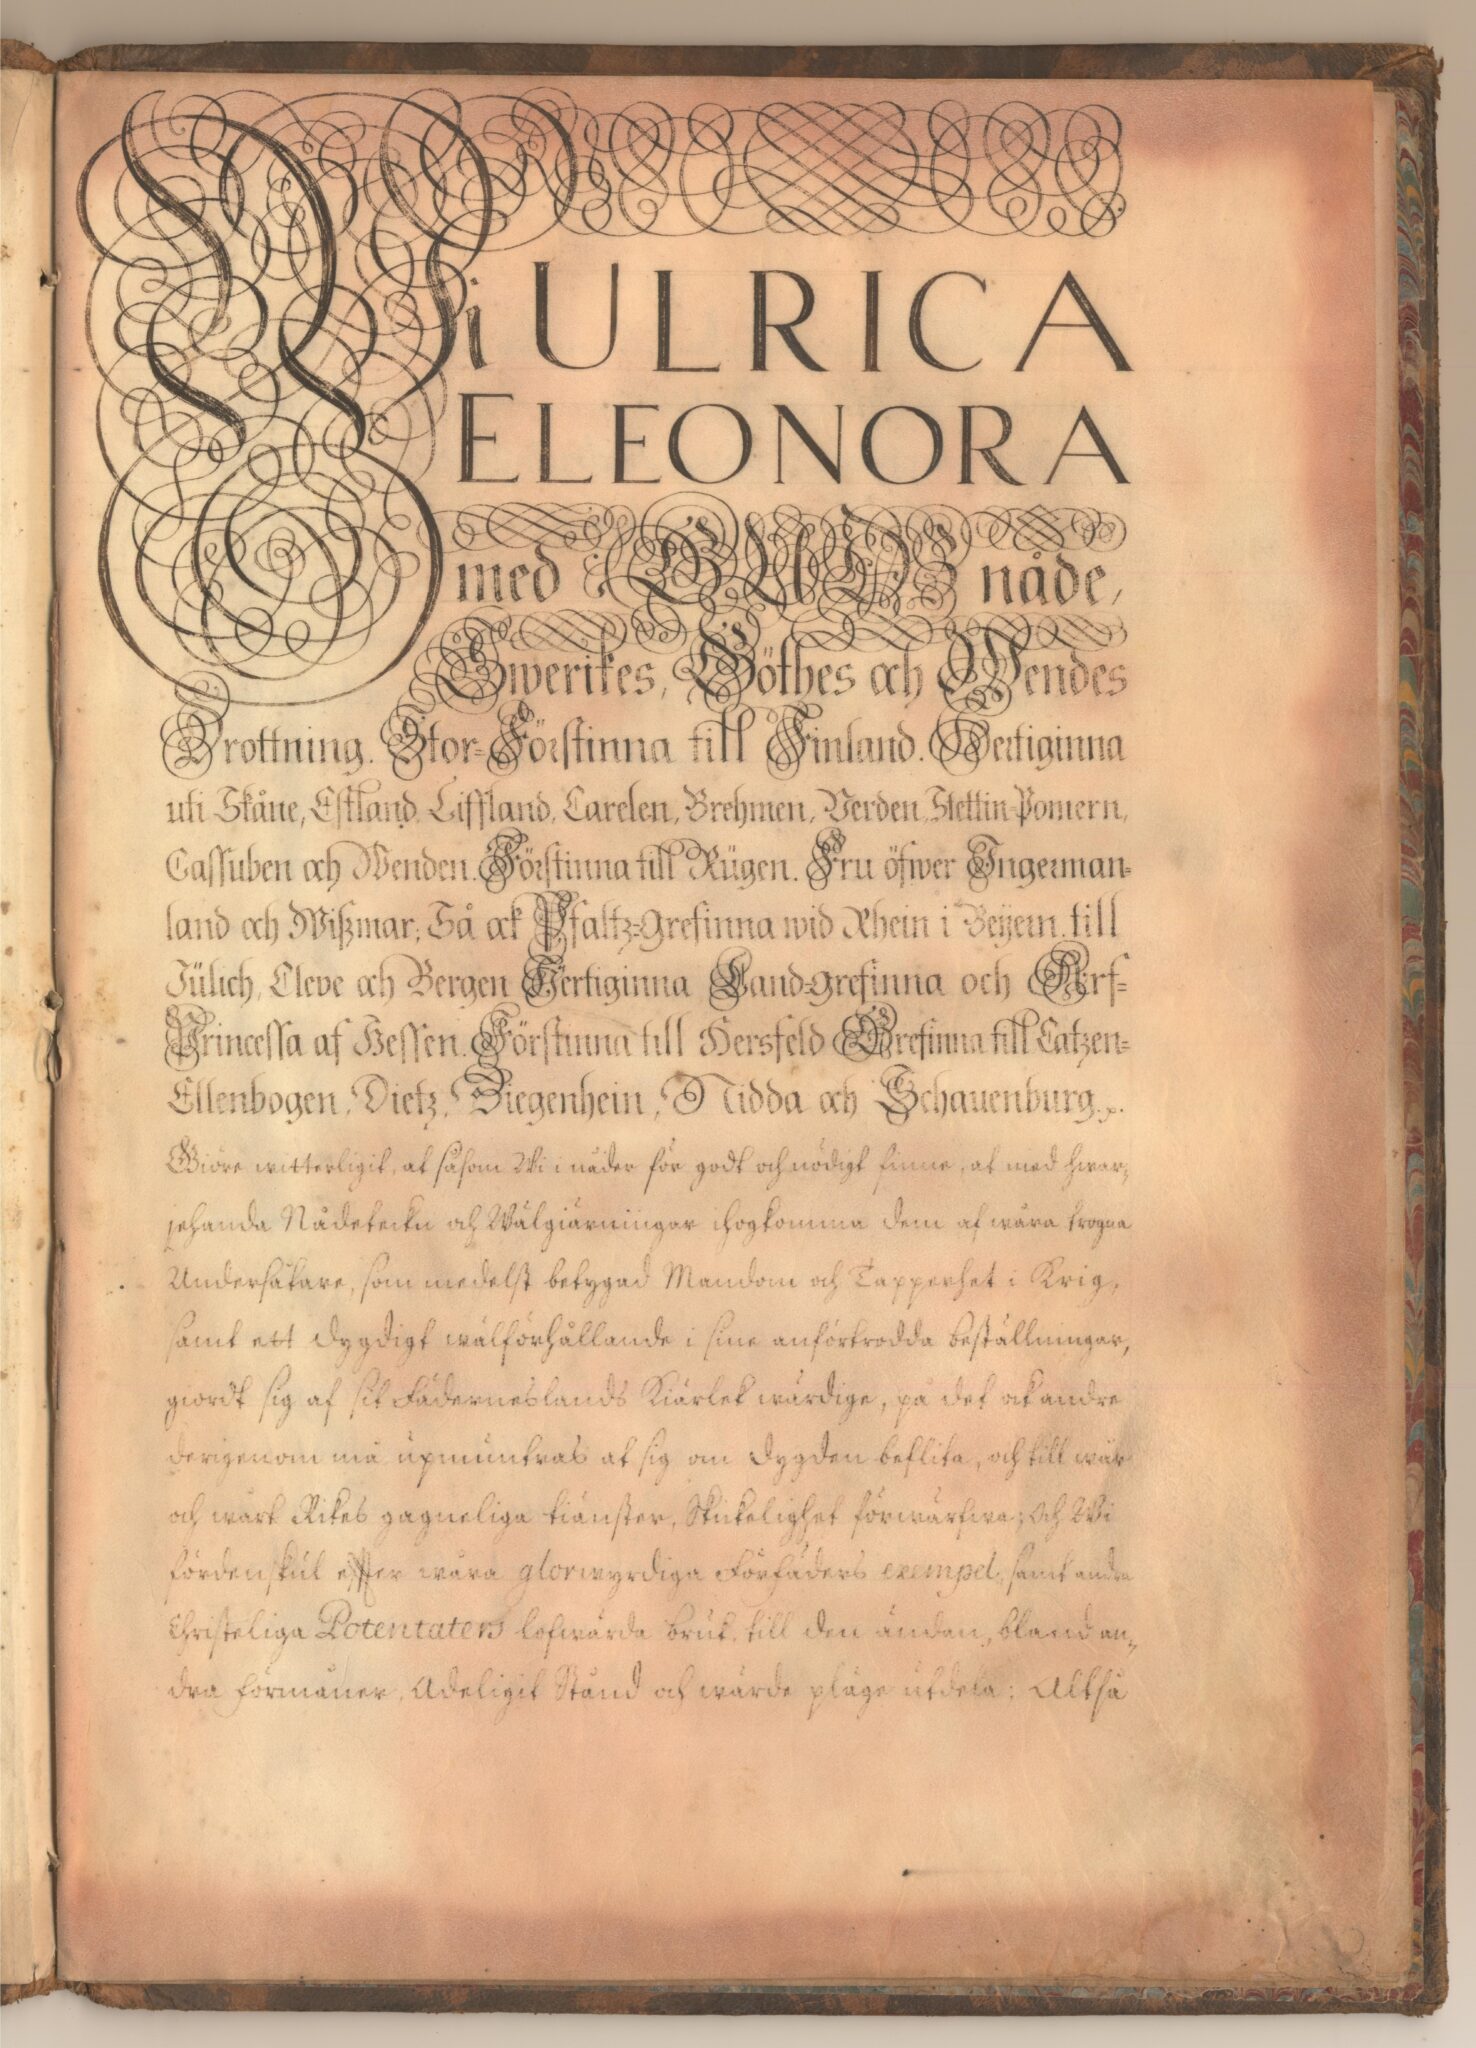 Wi ULRICA
ELEONORA
med GUDS nåde,
Swerikes, Göthes och Wendes
Drottning. Stor-Förstinna till Finland. Hertiginna
uti Skåne, Estland, Liffland, Carelen, Brehmen, Verden, Stettin-Pomern,
Cassuben och Wenden. Förstinna till Rügen. Fru öfwer Ingerman-
land och Wißmar; Så ock Pfaltz-Grefinna wid Rhein i Beÿern till
Jülich, Cleve och Bergen Hertiginna Land-grefinna och Arf-
Princessa af Hessen. Förstinna till Hersfeld Grefinna till Catzen-
Ellenbogen, Dietz, Ziegenhein, Nidda och Schauenburg. p.
Giöre witterligit, at såsom Wi i nåder för godt och nödigt finne, at med hwar-
jehanda Nådetekn och Wälgiärningar ihogkomma dem af wåra trogna
Undersåtare, som medelst betygad Mandom och Tapperhet i Krig,
samt ett dygdigt wälförhållande i sine anförtrodda beställningar,
giordt sig af sit Fäderneslands Kiärlek wärdige, på det ock andre
derigenom må upmuntras at sig om dygden beflita, och till wår
och wårt Rikes gagneliga tiänster, Skickelighet förwärfwa; Och Wi
fördenskul efter wåra glorwyrdiga Förfäders exempel, samt andra
Christeliga Potentaters lofwärda bruk, till den ändan, bland an-
dra förmåner, Adeligit Stånd och wärde pläge utdela; Altså